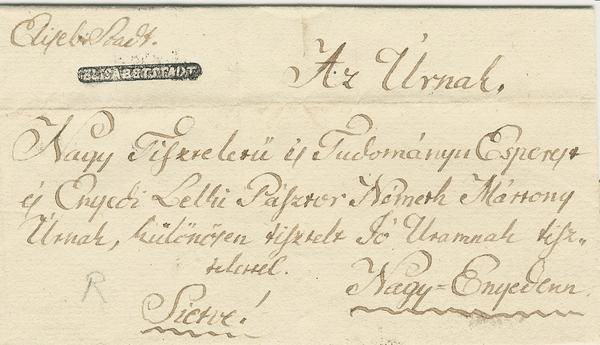 Elisab: Stadt.
ELISABETSTADT
Az Úrnak,
Nagy Tiszteletű és Tudományu Esperest
és Enyedi Lelki Pásztor Németh Márton
Úrnak, különösen tisztelt Jó Uramnak tisz„
telettel.
R
Nagy=Enyedenn
Sietve!